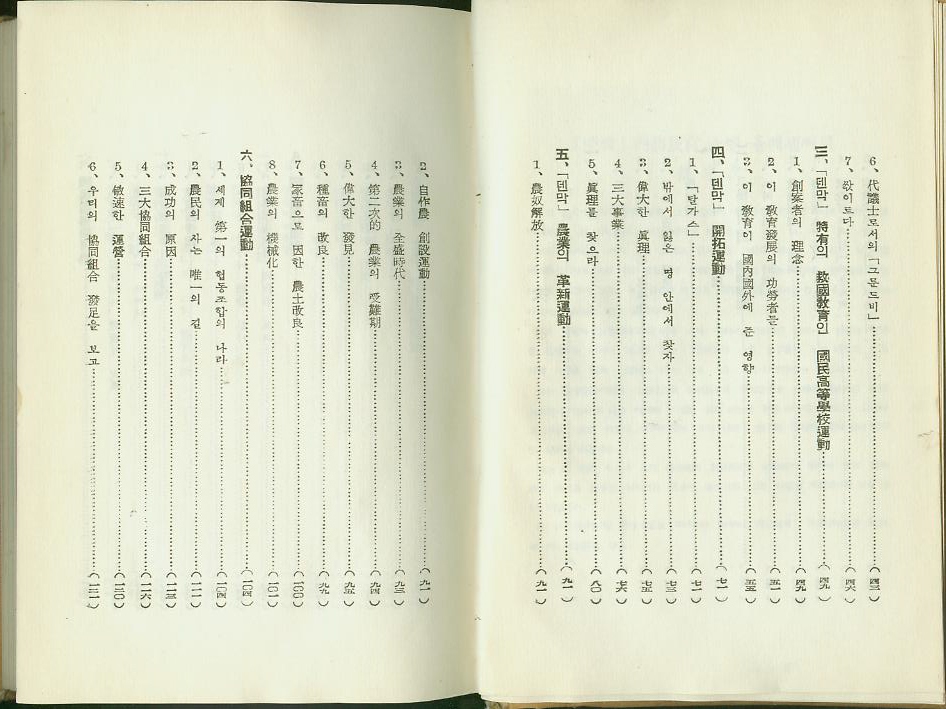 6、代議士로서의「그룬드비」(四三)
7、쌌이트다(四六)
三、「덴막」特有의 敎國敎育인 國民高等學校運動(四九)
1、創案者의 理念(四九)
2、이 敎育發展의 功勞者들(五一)
3、이 敎育이 國內國外에 준 영향(五五)
四、「덴막」開拓運動(七一)
1、「달가스」(七一)
2、밖에서 잃은 땅 안에서 찾자(七三)
3、偉大한 眞理(七五)
4、三大事業(七六)
5、眞理를 찾으라(八〇)
五、「덴막」農業의 革新運動(九一)
1、農奴解放(九一)
2、自作農 創設運動(九一)
3、農業의 全盛時代(九三)
4、第二次的 農業의 受難期(九四)
5、偉大한 發見(九五)
6、種畜의 改良(九九)
7、家畜으로 因한 農土改良(一〇〇)
8、農業의 機械化(一〇一)
六、協同組合運動(一〇四)
1、세계 第一의 협동조합의 나라(一〇四)
2、農民의 사는 唯一의 길(一一一)
3、成功의 原因(一一三)
4、三大協同組合(一一六)
5、敏速한 運營(一三〇)
6、우리의 協同組合 發足을 보고(一三一)